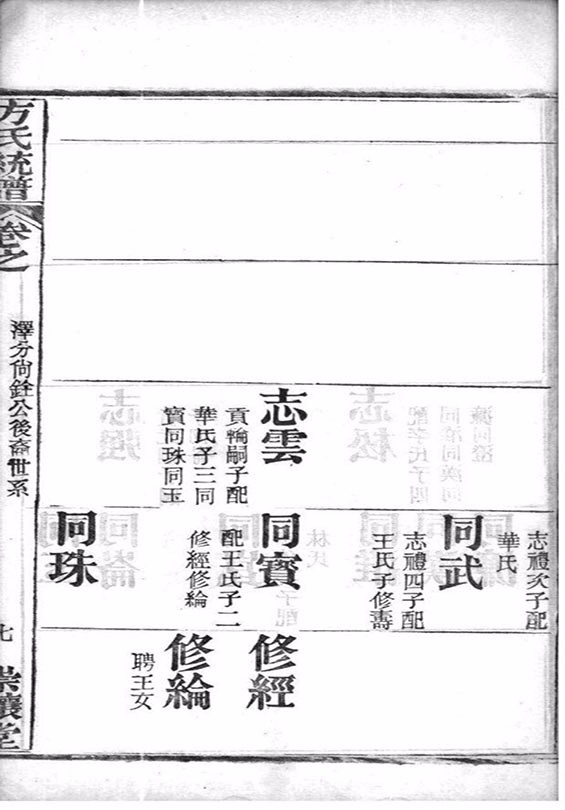 志雲
貢輪嗣子配
華氏子三同
寳同珠同玉
志禮次子配
華氏
同武
志禮四子配
王氏子修壽
同寳
配王氏子二
修經修綸
同珠
修經
修綸
聘王女
方氏統譜
卷之
澤分尙銓公後裔世系
七
崇讓堂